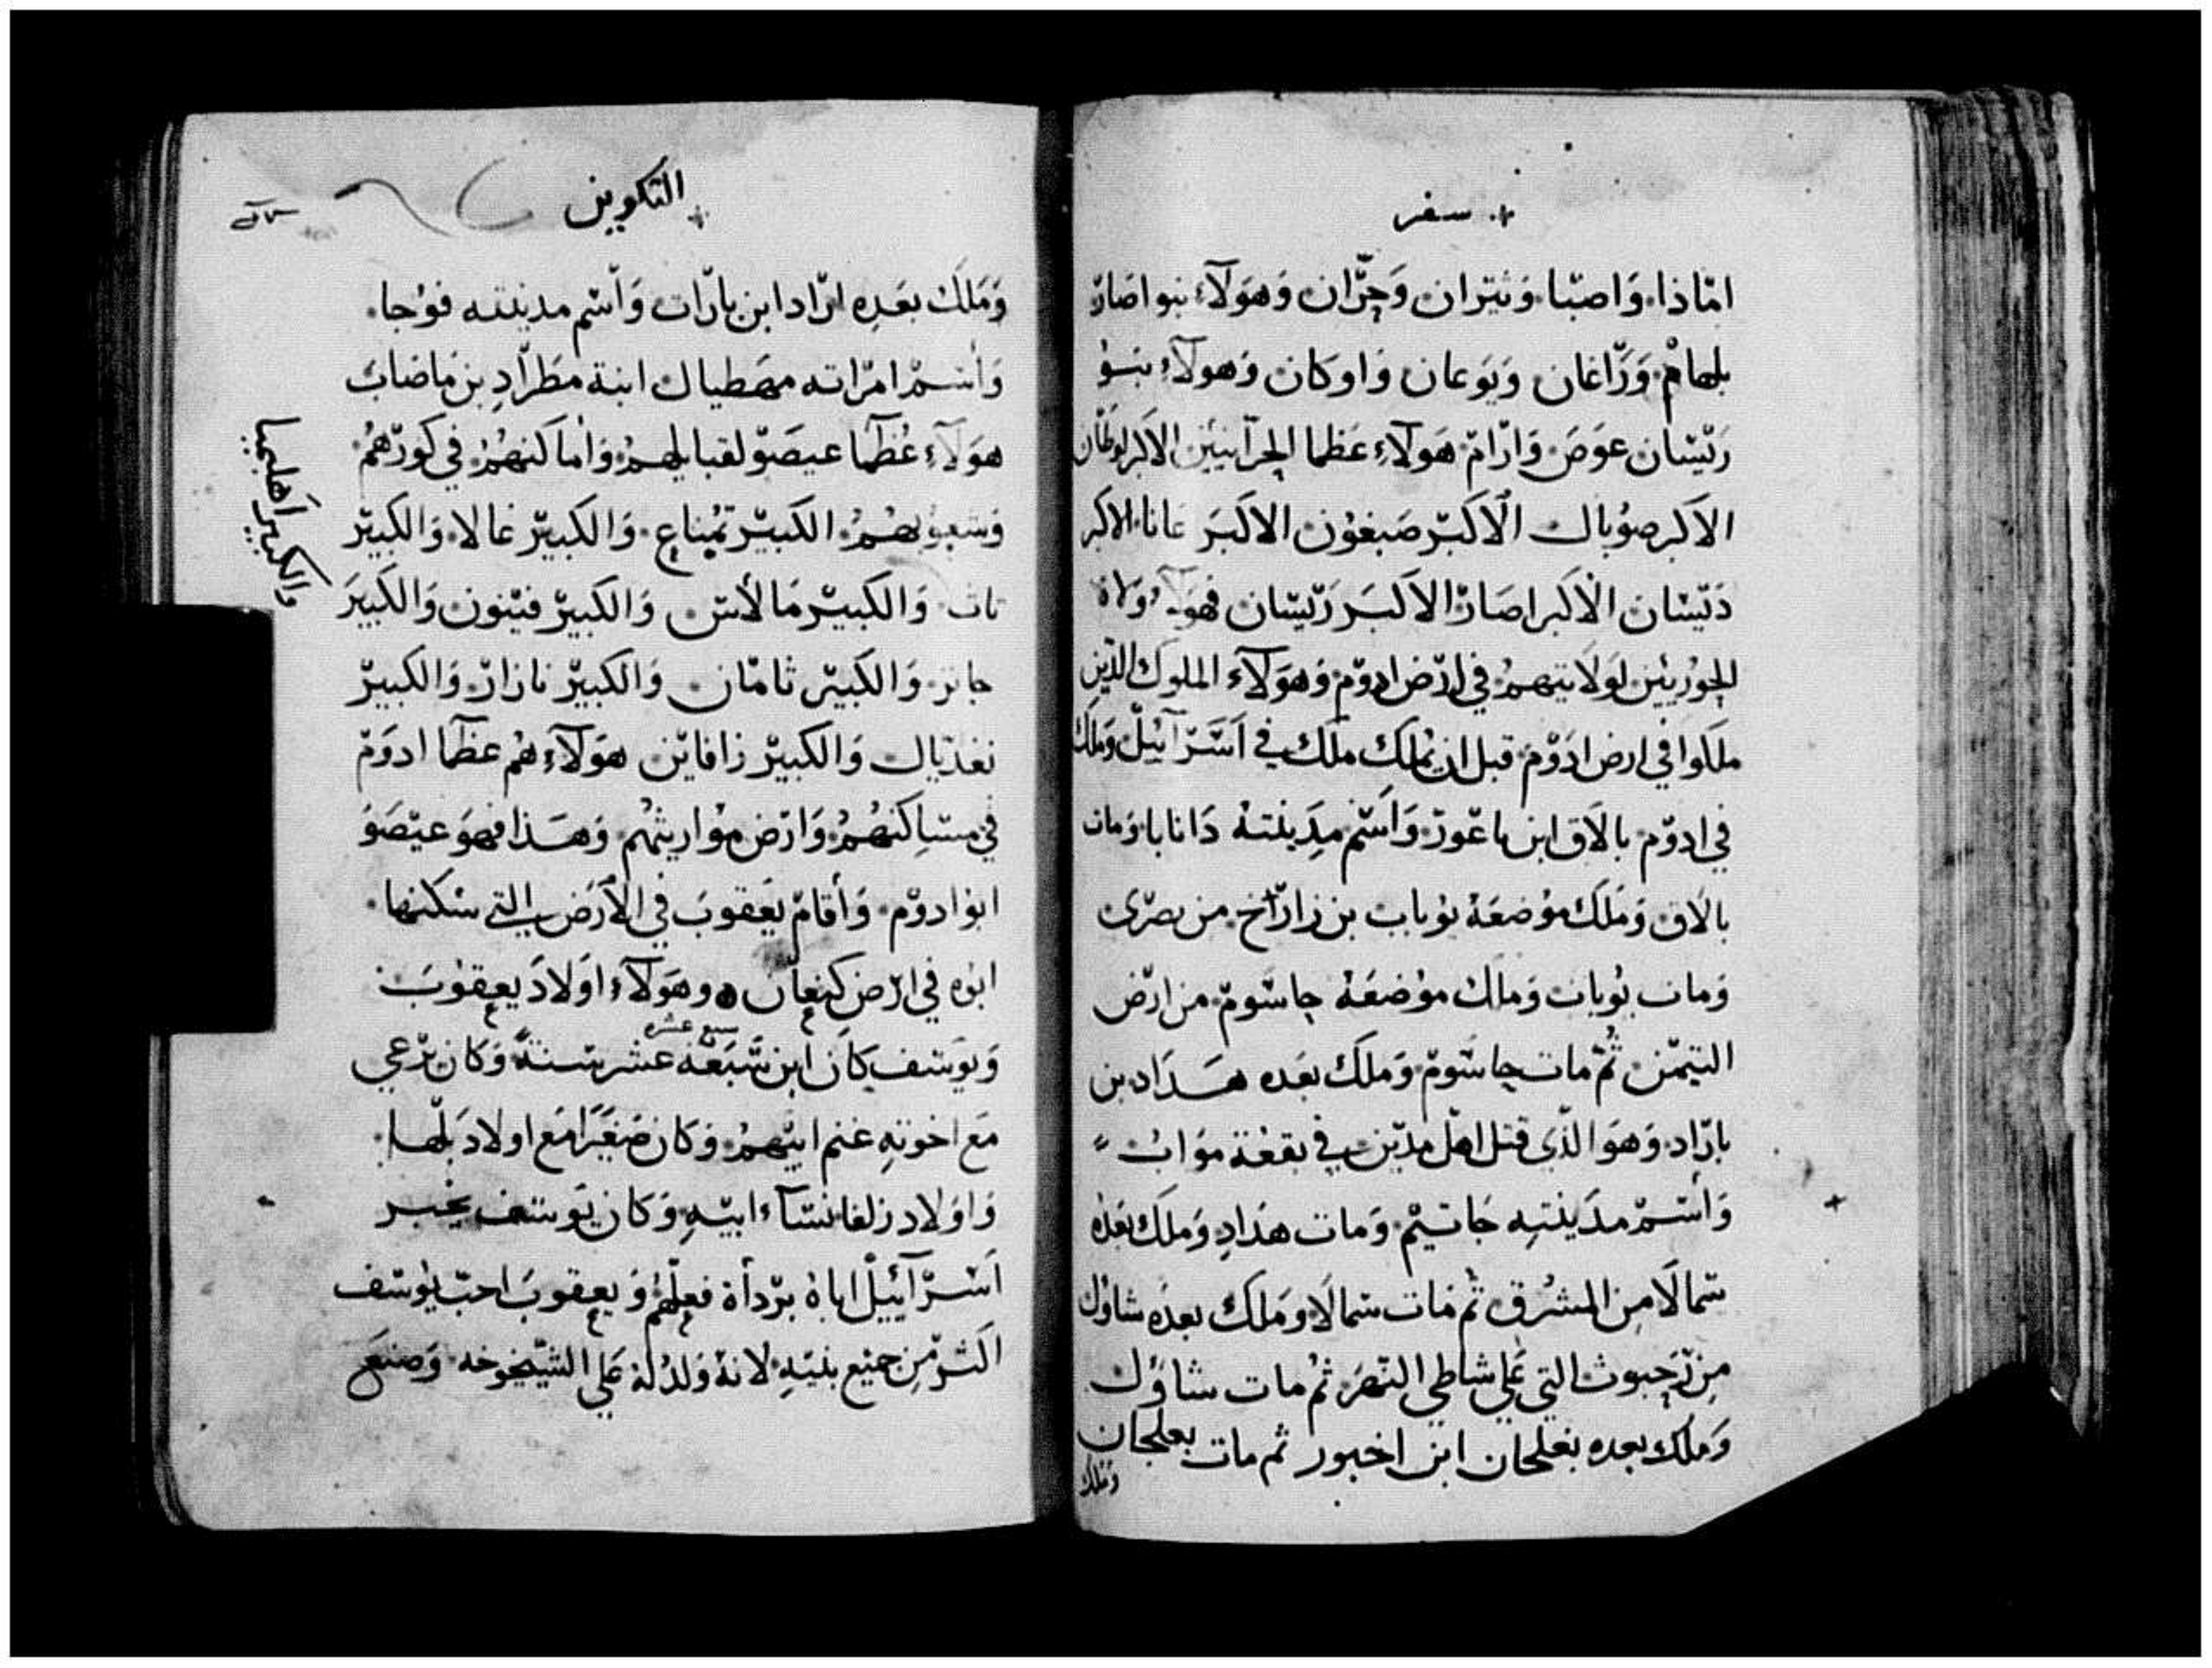 سفر
امّاذا، وَاصبّا، وَيثران وَجرّان وَهوَلآء بنو اصَار
بلهام، وَزّاغان وَيَوعان وَاوكان وَهولآء بنو
رَيّشان عوَص وَارّام، هَوَلآءِ عَظما الحرّانيين الاكبر لوطان
الاكبر صوُبال الاكبّر صَبغوُن الاكبَر عانا، الاكبر
دَيّشان الاكبر اصَارّ الاكبَر رَيّشان فهوَلآء وُلاة
الحوُريّين لوَلايتهمُ في ارّض ادوّم وَهوَلآء الملوك الذّين
ملَكوا في ارض ادَوّم قبل ان يُملك ملَك في اَسَرآئيلّ وَملك
في ادوّم بالاَق ابن باعّورّ وَاسّم مدِينتهُ دَانابا وَمات
بالاَق وَمَلَك موُضعَهُ يوُباب بن زارّاخ من بصرّى
وَمات يوُباب وَملك موُضعَهُ حاسّوم من ارّض
التيّمن ثُمّ مات حاسّوم وَملَك بعَده هَدَاد بن
بارّاد وَهوَ الذّي قتل اهل مدّين في بقعُة موَاب
وَأسّمْ مدَينتِه جَاتيم وَمات هدَادِ وَملَك بعَدهُ
سَمالاَ من المشرُق ثمُ مات سَمالاَ وَملَك بعدَه شاوُل
مِن رّحبوث التي عَلي شاطي النّهرَ ثمُ مات شاوُل
وَملك بعده بعلحان ابن اخبور ثم مات بعلحان
وَملك
التكوين
وَمَلَك بعَدِه ارّاد ابن بارّات وَاسّم مدينته فوُجا.
وَأسْم امرّاته مهَطيال ابنة مطرّادِ بن ماضاب
هوَلآءِ عُظمَا عيصَوّ لقبايلهمُ وَأماكنهُمُ في كورّهمُ
وَشعوُبهمُ، الكبيرّ تمُناع، وَالكبيرّ غالا، وَالكبيرّ
والكبير اهليبما
تاث وَالكبيرّ مَالأس وَالكبيرّ فيَنون وَالكَبيرَ
جانز وَالكبيرّ ثامّان وَالكبيرّ نازارّ وَالكبيرّ
نغدّيال وَالكبيرّ زافايّن هوَلآءِ هُم عظمَا ادوَم
في مسَاكنهُمُ وَارّض موُاريثهُم وَهذا فهوَ عيّصَوَ
ابوُ ادوّم وَأقامّ يَعقوبَ في الأرَض التي سكنها
ابوُه في ارّض كنعان وهوَلآءِ اوَلادَ يعقوُبَ
سبع عشره
وَيوَسف كانَ ابن سَبَعة عشر سَنةً وَكان يرّعي
مَع اخوتهِ غنم ابيّهمُ وَكان صَغيَرًا مَع اولادَ بَلها
وَاوَلاد زلفا نسَآء ابيّهِ وَكان يوَسف يخبر
اَسَرّآئيلّ اباهُ برّدأة فعلهمُ وَ يعقوبَ احبّ يوُسف
اكثرّ مّن جميّع بنيّهِ لانهُ وَلدُ لهُ عَلي الشّيخوخه وَصنعَ